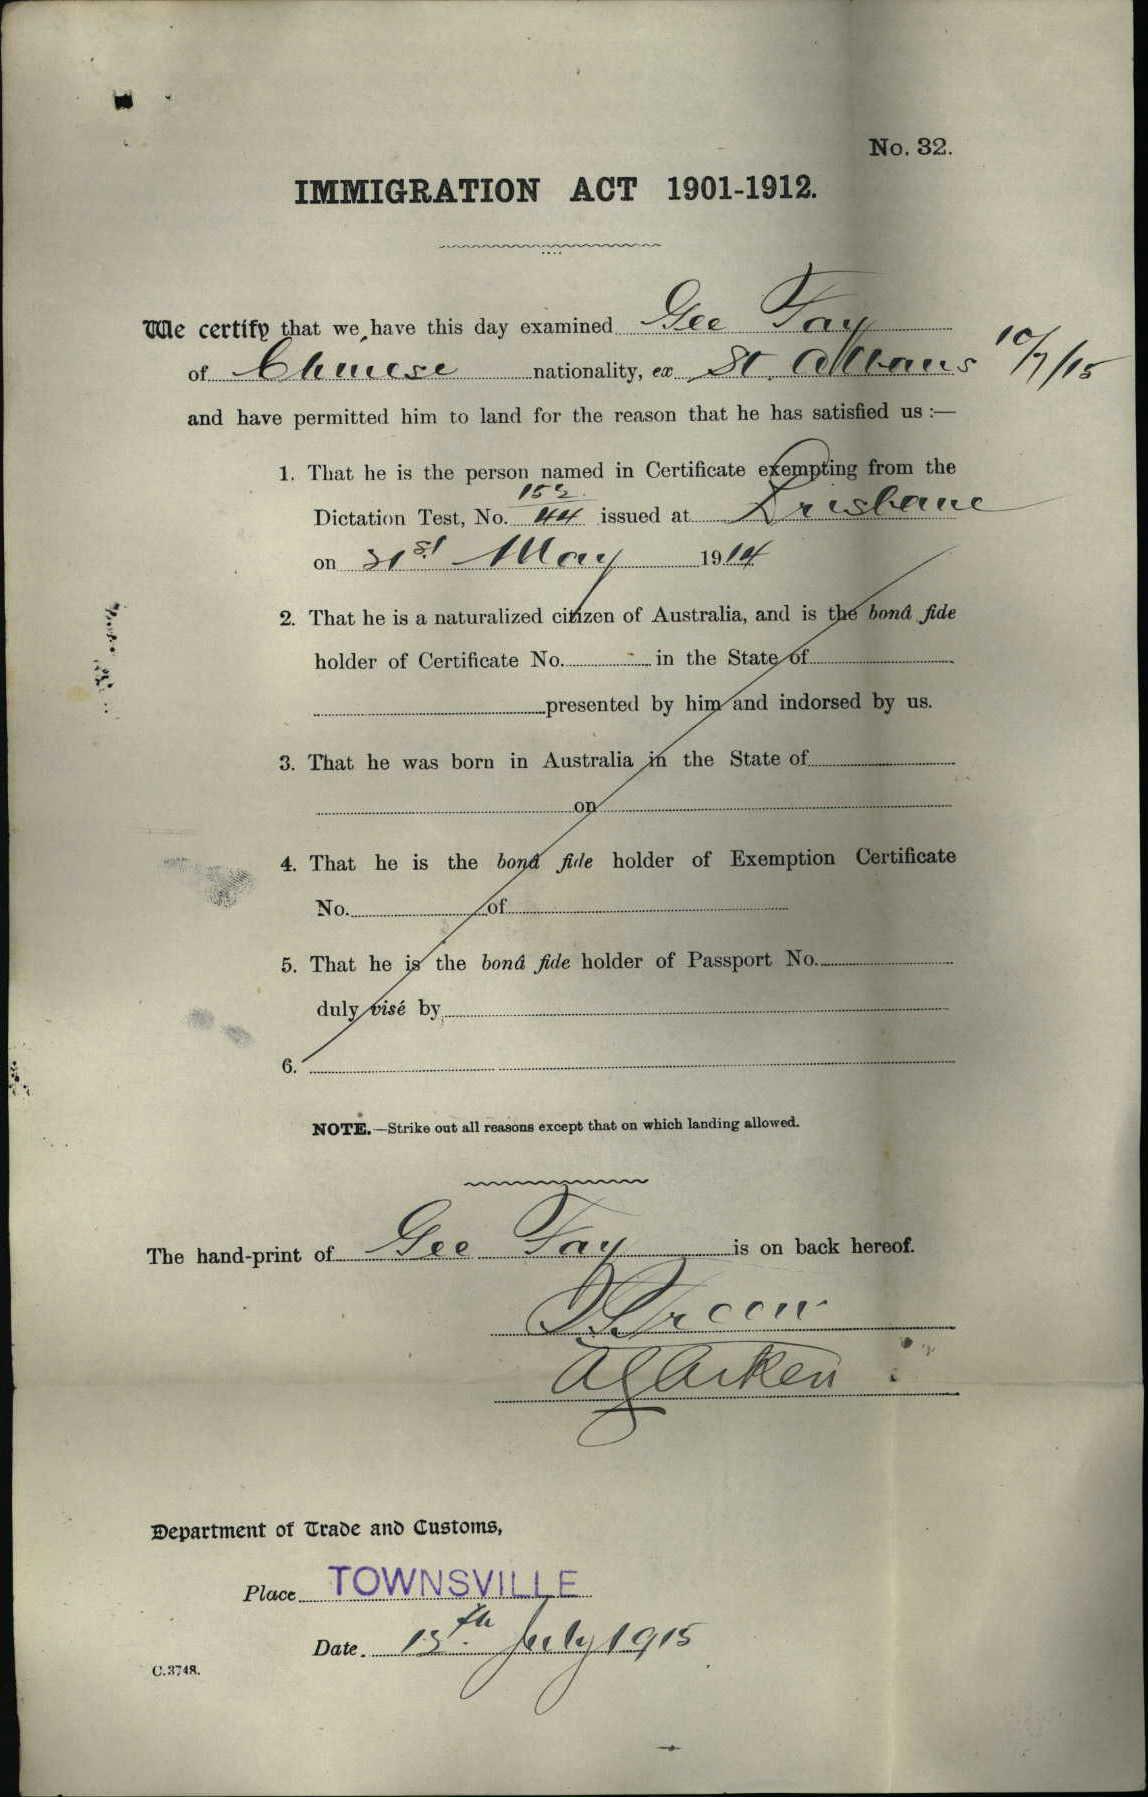 No. 32.
IMMIGRATION ACT 1901-1912.
We certify that we have this day examined Gee Fay
of Chinese nationality, ex St. Albans 10/7/15
and have permitted him to land for the reason that he has satisfied us :—
1. That he is the person named in Certificate exempting from the
152
Dictation Test, No. 44 issued at Brisbane
on 31st May 1914
2. That he is a naturalized citizen of Australia, and is the bonâ fide
holder of Certificate No. in the State of
presented by him and indorsed by us.
3. That he was born in Australia in the State of
on
4. That he is the bonâ fide holder of Exemption Certificate
No. of
5. That he is the bonâ fide holder of Passport No.
duly visé by
6.
NOTE.—Strike out all reasons except that on which landing allowed.
The hand-print of Gee Fay is on back hereof.
Department of Trade and Customs,
Place TOWNSVILLE
Date. 13th July 1915
C.3748.